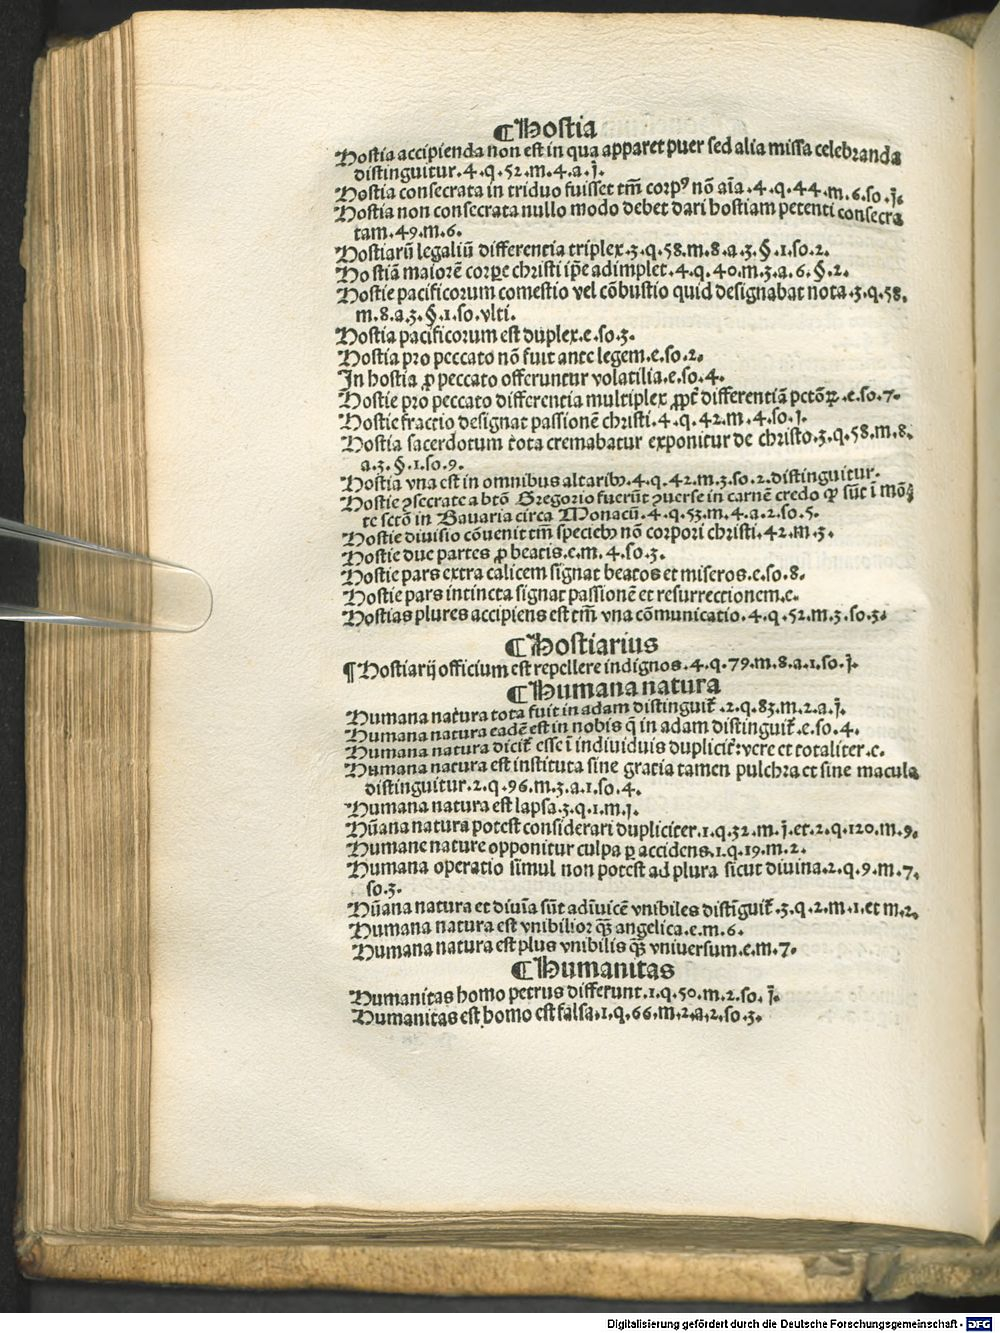 ¶Hostia
Hostia accipienda non est in qua apparet puer sed alia missa celebranda
distinguitur.4.q.52.m.4.a.j.
Hostia consecrata in triduo fuisset tm̄ corpꝰ nō aīa.4.q.44.m.6.so.j.
Hostia non consecrata nullo modo debet dari hostiam petenti consecra
tam.49.m.6.
Hostiarū legaliū differentia triplex.3.q.58.m.8.a.3.§.1.so.2.
Hostiā maiorē corpꝑe christi ip̄e adimplet.4.q.40.m.3.a.6.§.2.
Hostie pacificorum comestio vel cōbustio quid designabat nota.3.q.58.
m.8.a.3.§.1.so.vlti.
Hostia pacificorum est duplex.e.so.3.
Hostia pro peccato nō fuit ante legem.e.so.2.
In hostia ꝓ peccato offeruntur volatilia.e.so.4.
Hostie pro peccato differentia multiplex ꝓpt̄ differentiā pctōꝝ.e.so.7.
Hostie fractio designat passionē christi.4.q.42.m.4.so.j.
Hostia sacerdotum tota cremabatur exponitur de christo.3.q.58.m.8.
a.3.§.1.so.9.
Hostia vna est in omnibus altaribꝫ.4.q.42.m.3.so.2.distinguitur.
Hostie ꝯsecrate a btō Gregorio fuerūt ꝯuerse in carnē credo ꝙ sūt ī mōa̅
te sctō in Bauaria circa Monacū.4.q.53.m.4.a.2.so.5.
Hostie diuisio cōuenit tm̄ speciebꝫ nō corpori christi.42.m.3.
Hostie due partes ꝓ beatis.e.m.4.so.3.
Hostie pars extra calicem signat beatos et miseros.e.so.8.
Hostie pars intincta signat passionē et resurrectionem.e.
Hostias plures accipiens est tm̄ vna cōmunicatio.4.q.52.m.3.so.3.
¶Hostiarius
¶Hostiarij officium est repellere indignos.4.q.79.m.8.a.1.so.j.
¶Humana natura
Humana natura tota fuit in adam distinguit̄.2.q.83.m.2.a.j.
Humana natura eadē est in nobis q̄ in adam distinguit̄.e.so.4.
Humana natura dicit̄ esse ī indiuiduis duplicit̄:vere et totaliter.e.
Humana natura est instituta sine gratia tamen pulchra et sine macula
distinguitur.2.q.96.m.3.a.1.so.4.
Humana natura est lapsa.3.q.1.m.j.
Hūana natura potest considerari dupliciter.1.q.32.m.j.et.2.q.120.m.9.
Humane nature opponitur culpa ꝑ accidens.1.q.19.m.2.
Humana operatio simul non potest ad plura sicut diuina.2.q.9.m.7.
so.3.
Hūana natura et diuīa sūt adīuicē vnibiles distīguit̄.3.q.2.m.1.et m.2.
Humana natura est vnibilior qȝ angelica.e.m.6.
Humana natura est plus vnibilis qȝ vniuersum.e.m.7.
¶Humanitas
Humanitas homo petrus differunt.1.q.50.m.2.so.j.
Humanitas est homo est falsa.1.q.66.m.2.a.2.so.3.
Digitalisierung gefördert durch die Deutsche Forschungsgemeinschaft - DFG